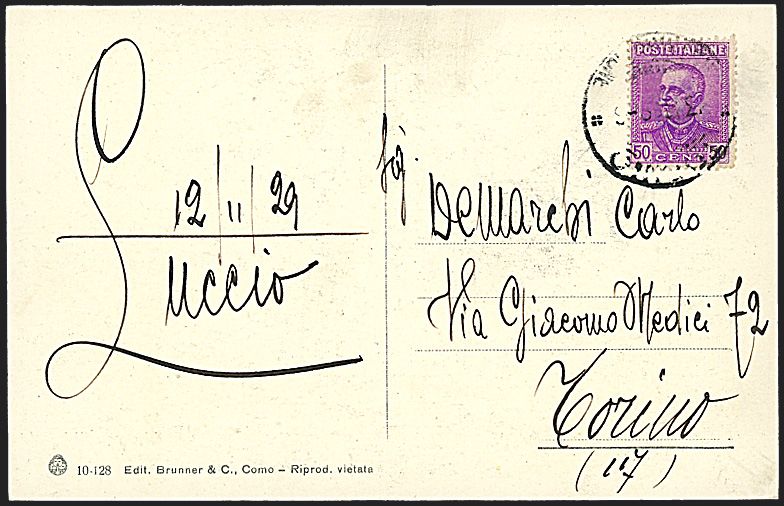 12/11/29
Luccio
10-128 Edit. Brunner & C., Como – Riprod. vietata
POSTE ITALIANE
50 CENT 50
Sig.
Demarchi Carlo
Via Giacomo Medici 72
Torino
(117)